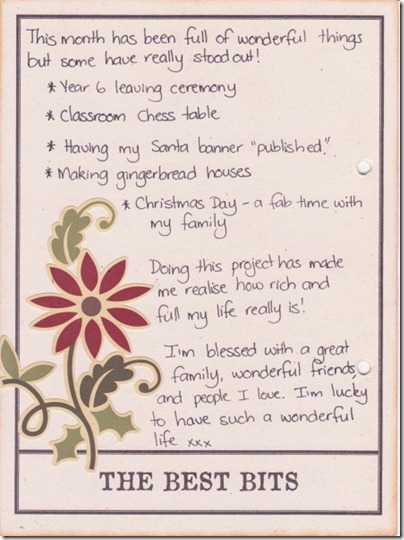 This month has been full of wonderful things
but some have really stood out!
* Year 6 leaving ceremony
* Classroom Chess table
* Having my Santa banner "published".
* Making gingerbread houses
* Christmas Day - a fab time with
my family
Doing this project has made
me realise how rich and
full my life really is!
I'm blessed with a great
family, wonderful friends
and people I love. I'm lucky
to have such a wonderful
life xxx
THE BEST BITS